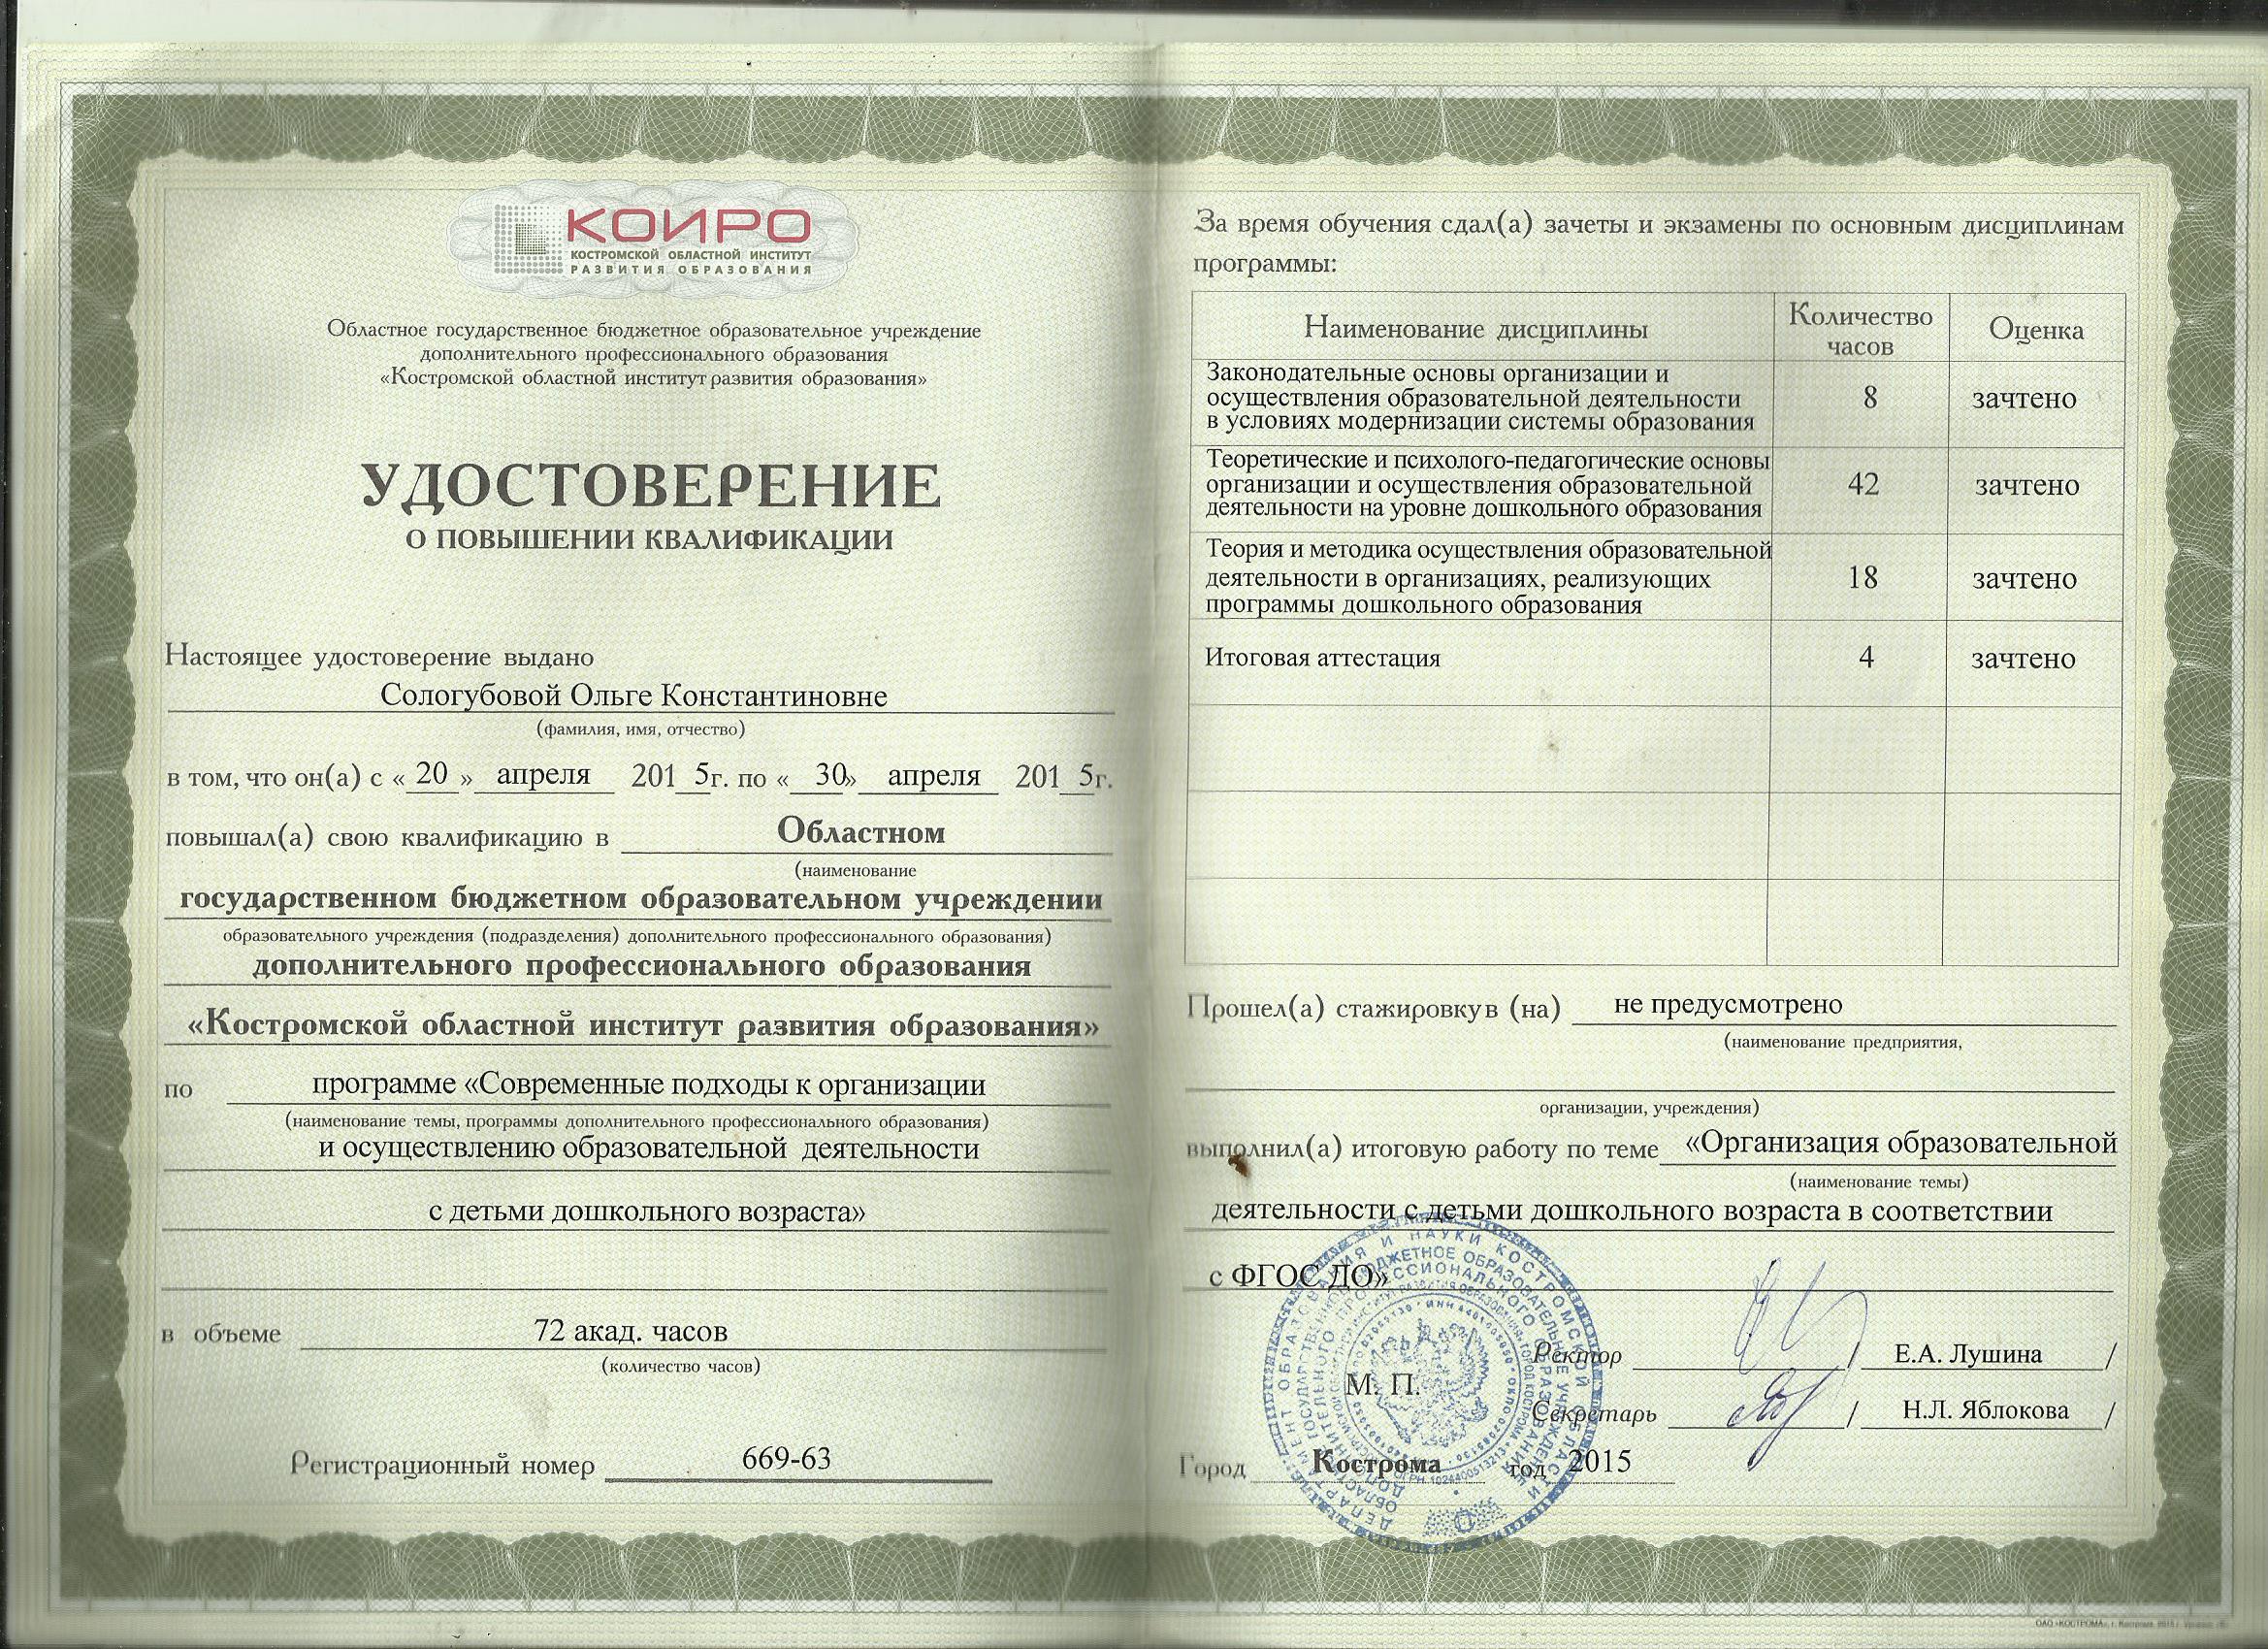 КОИРО
КОСТРОМСКОЙ ОБЛАСТНОЙ ИНСТИТУТ
РАЗВИТИЯ ОБРАЗОВАНИЯ
Областное государственное бюджетное образовательное учреждение
дополнительного профессионального образования
«Костромской областной институт развития образования»
УДОСТОВЕРЕНИЕ
О ПОВЫШЕНИИ КВАЛИФИКАЦИИ
Настоящее удостоверение выдано
Сологубовой Ольге Константиновне
(фамилия, имя, отчество)
в том, что он(а) с « 20 » апреля 201 5г. по « 30» апреля 201 5г.
повышал(а) свою квалификацию в Областном
(наименование
государственном бюджетном образовательном учреждении
образовательного учреждения (подразделения) дополнительного профессионального образования)
дополнительного профессионального образования
«Костромской областной институт развития образования»
по программе «Современные подходы к организации
(наименование темы, программы дополнительного профессионального образования)
и осуществлению образовательной деятельности
с детьми дошкольного возраста»
в объеме 72 акад. часов
(количество часов)
Регистрационный номер 669-63
За время обучения сдал(а) зачеты и экзамены по основным дисциплинам
программы:
Наименование дисциплины Количество часов Оценка
Законодательные основы организации и
осуществления образовательной деятельности 8 зачтено
в условиях модернизации системы образования
Теоретические и психолого-педагогические основы
организации и осуществления образовательной 42 зачтено
деятельности на уровне дошкольного образования
Теория и методика осуществления образовательной
деятельности в организациях, реализующих 18 зачтено
программы дошкольного образования
Итоговая аттестация 4 зачтено
Прошел(а) стажировку в (на) не предусмотрено
(наименование предприятия,
организации, учреждения)
выполнил(а) итоговую работу по теме «Организация образовательной
(наименование темы)
деятельности с детьми дошкольного возраста в соответствии
с ФГОС ДО»
Ректор / Е.А. Лушина /
М. П.
Секретарь / Н.Л. Яблокова /
Город Кострома год 2015